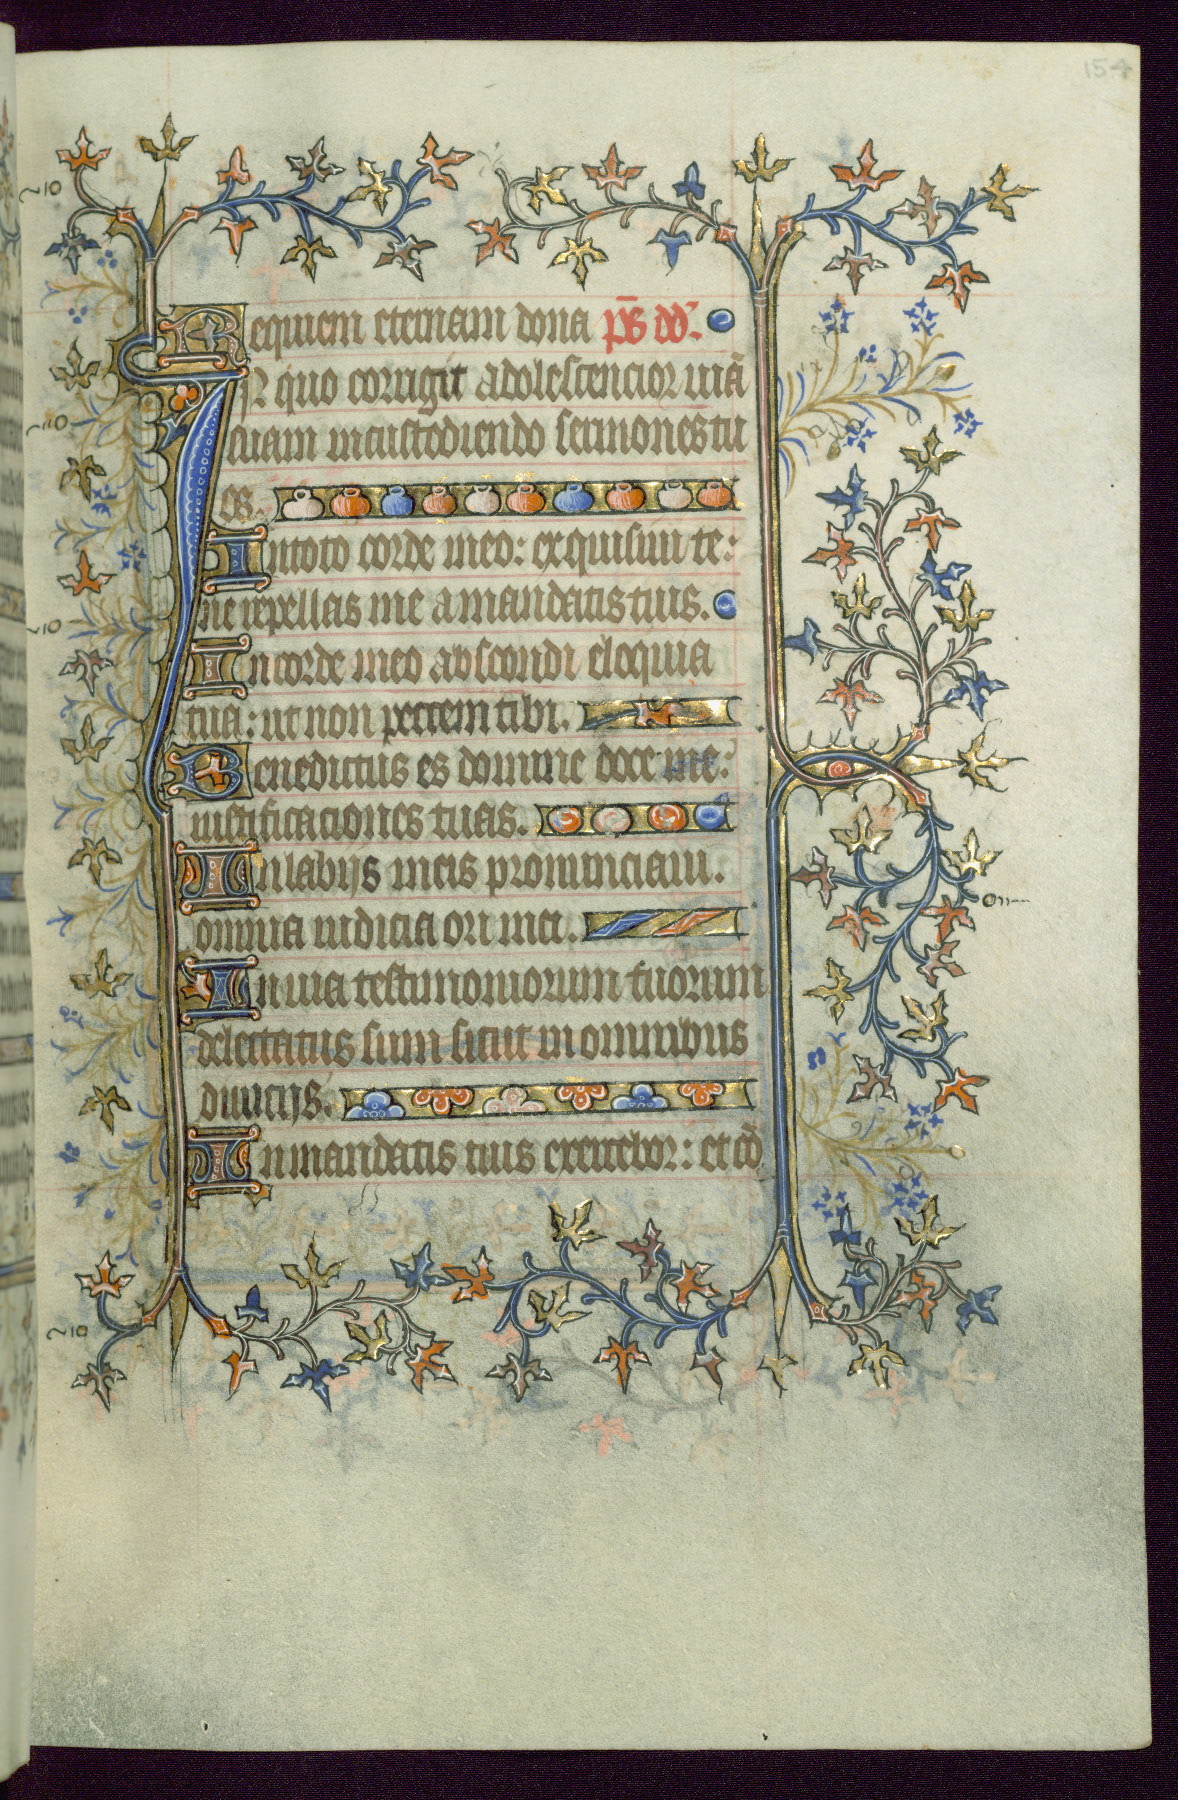 154
Requiem eternam dona ps dd.
In quo corrigit adolescencior uiã
suam in custodiendo sermones tu
os.
In toto corde meo: exquisiui te:
ne repellas me a mandatis tuis.
In corde meo abscondi eloquia
tua: ut non peccem tibi.
Benedictus es domine doce me:
iustificaciones tuas.
In labijs meis pronunciaui.
omnia iudicia oris mei.
In uia testimoniorum tuorum
delectatus sum sicut in omnibus
diuicijs.
In mandatis tuis exercebor: et cõ